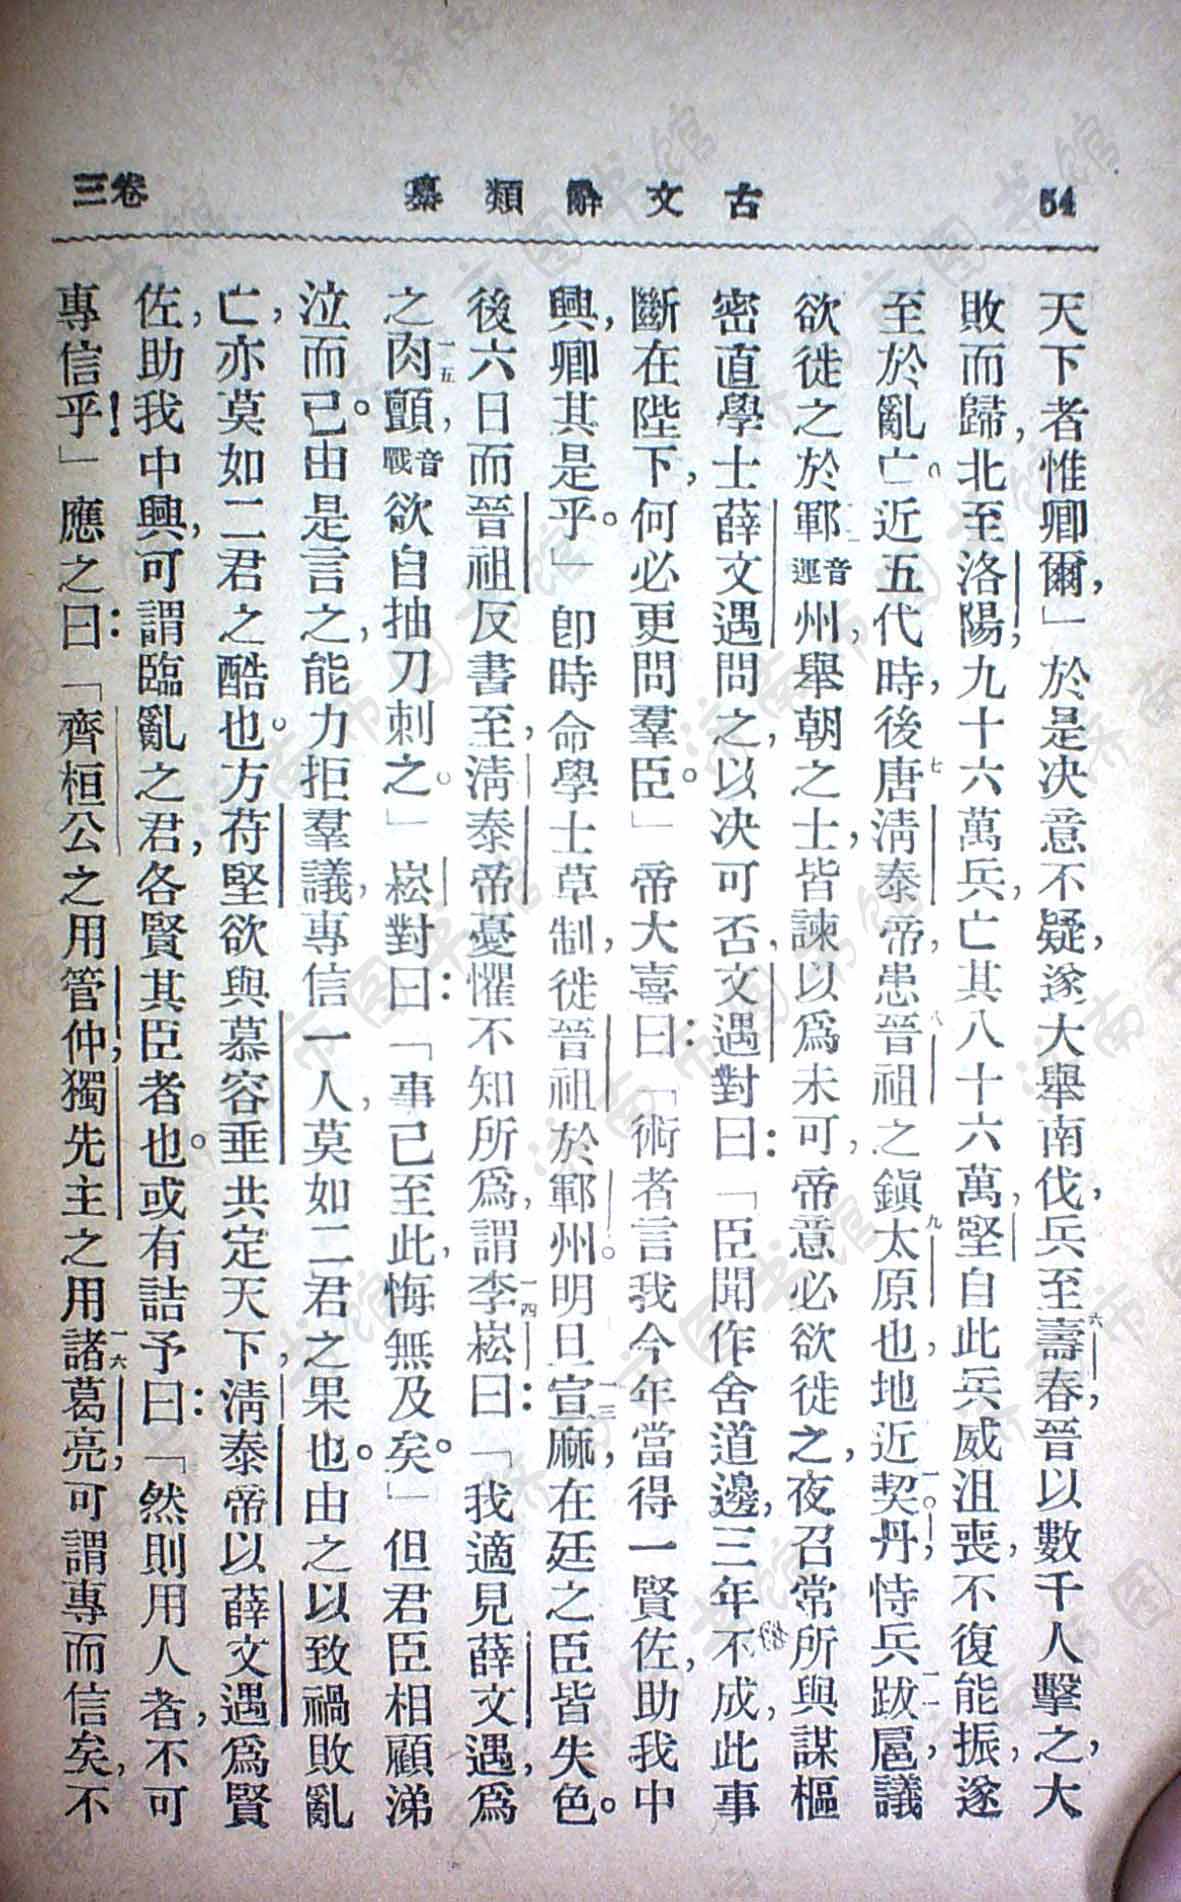 54
古文辭類纂
卷三
天下者惟卿爾」於是决意不疑，遂大舉南伐，兵至六壽春，晉以數千人擊之，大
敗而歸，北至洛陽，九十六萬兵，亡其八十六萬，堅自此兵威沮喪，不復能振，遂
至於亂亡。近五代時，後唐七清泰帝，患晉八祖之鎭太九原也，地近契一〇丹，恃兵跋一一扈，議
欲徙之於鄆音運州，舉朝之士，皆諫以爲未可，帝意必欲徙之，夜召常所與謀樞
密直學士薛文遇問之，以决可否，文遇對曰：「臣聞作舍道邊，三年不成，此事
斷在陛下，何必更問羣臣。」帝大喜曰：「術者言我今年當得一賢佐，助我中
興，卿其是乎。」卽時命學士草制，徙晉祖於鄆州。明旦宣一三麻，在廷之臣皆失色。
後六日而晉祖反書至，清泰帝憂懼不知所爲，謂李一四崧曰：「我適見薛文遇，爲
之肉一五顫，音戰欲自抽刀刺之。」崧對曰：「事己至此，悔無及矣。」但君臣相顧涕
泣而己。由是言之，能力拒羣議，專信一人，莫如二君之果也。由之以致禍敗亂
亡，亦莫如二君之酷也。方苻堅欲與慕容垂共定天下，清泰帝以薛文遇爲賢
佐，助我中興，可謂臨亂之君，各賢其臣者也。或有詰予曰：「然則用人者，不可
專信乎！」應之曰：「齊桓公之用管仲，獨先主之用諸一六葛亮，可謂專而信矣，不